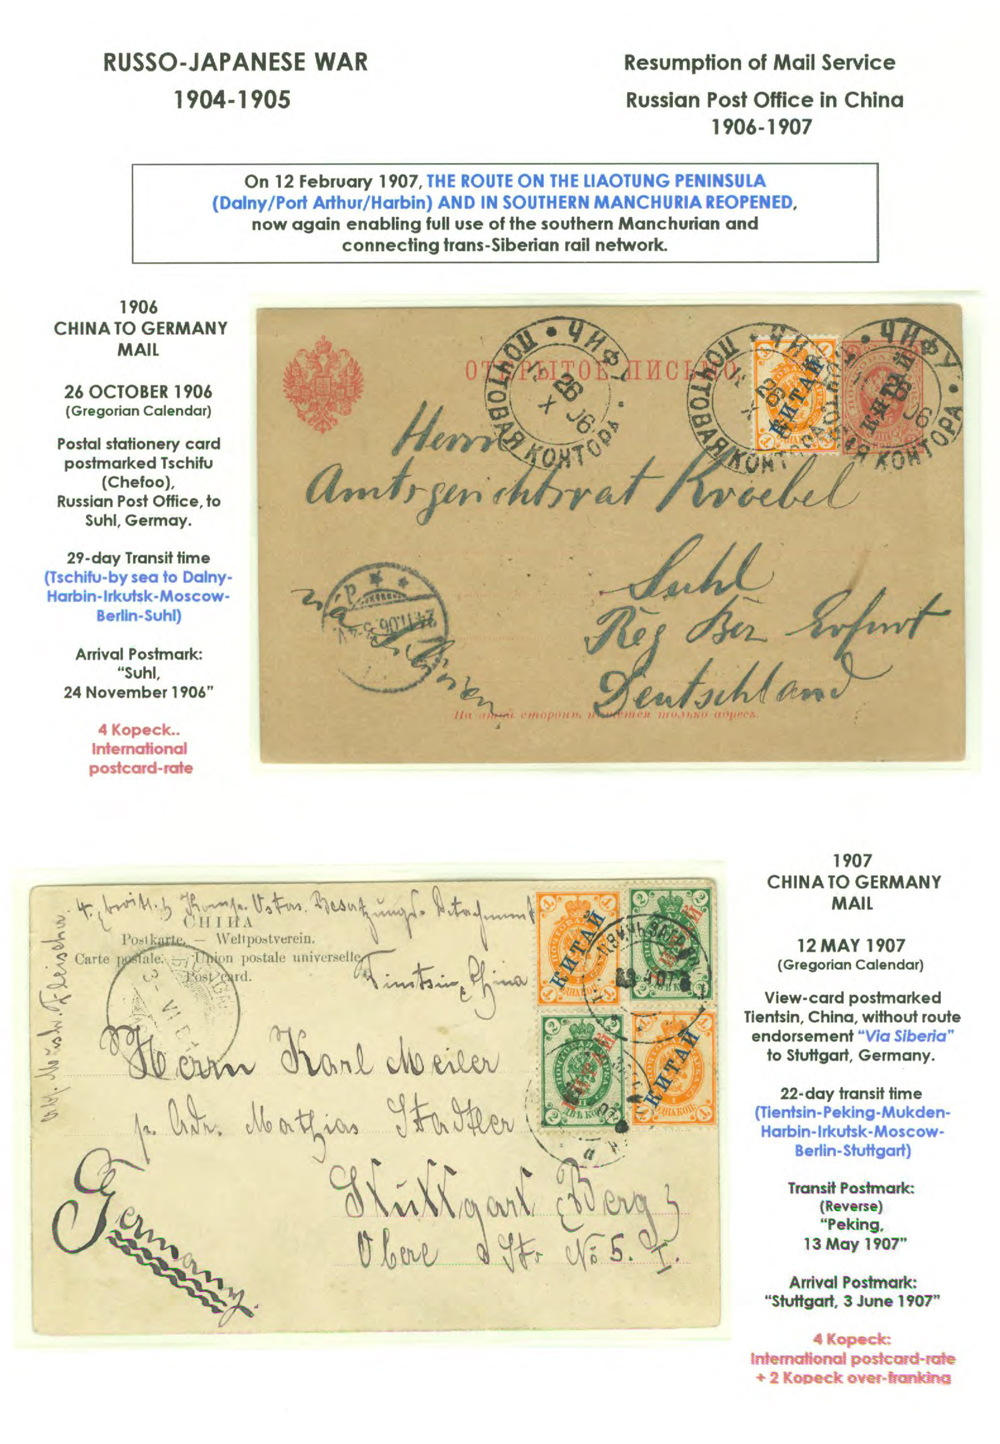 RUSSO-JAPANESE WAR
1904-1905
Resumption of Mail Service
Russian Post Office in China
1906-1907
On 12 February 1907, THE ROUTE ON THE LIAOTUNG PENINSULA
(Dalny/Port Arthur/Harbin) AND IN SOUTHERN MANCHURIA REOPENED,
now again enabling full use of the southern Manchurian and
connecting trans-Siberian rail network.
1906
CHINA TO GERMANY
MAIL
26 OCTOBER 1906
(Gregorian Calendar)
Postal stationery card
postmarked Tschifu
(Chefoo),
Russian Post Office, to
Suhl, Germay.
29-day Transit time
(Tschifu-by sea to Dalny-
Harbin-Irkutsk-Moscow-
Berlin-Suhl)
Arrival Postmark:
"Suhl,
24 November 1906"
4 Kopeck..
International
postcard-rate
ОТКРЫТОЕ ПИСЬМО
ЧИФУ
ПОЧТОВАЯ КОНТОРА
26
X 06
КИТАЙ
КИТАЙ
Herrn
Amtsgerichtsrat Kroebel
Suhl
Reg Bez Erfurt
Deutschland
via Sibirien
На этой стороне пишется только адресъ.
4. Komp. Ostas. Besatzungs-Detachment
Tientsin, China
CHINA
Postkarte. — Weltpostverein.
Carte postale. — Union postale universelle
Post card.
КИТАЙ
КИТАЙ
КИТАЙ
КИТАЙ
Herrn Karl Meiler
p. Adr. Mathias Stadtler
Stuttgart (Berg)
Obere Str No 5. I.
Germany.
1907
CHINA TO GERMANY
MAIL
12 MAY 1907
(Gregorian Calendar)
View-card postmarked
Tientsin, China, without route
endorsement "Via Siberia"
to Stuttgart, Germany.
22-day transit time
(Tientsin-Peking-Mukden-
Harbin-Irkutsk-Moscow-
Berlin-Stuttgart)
Transit Postmark:
(Reverse)
"Peking,
13 May 1907"
Arrival Postmark:
"Stuttgart, 3 June 1907"
4 Kopeck:
International postcard-rate
+ 2 Kopeck over-franking